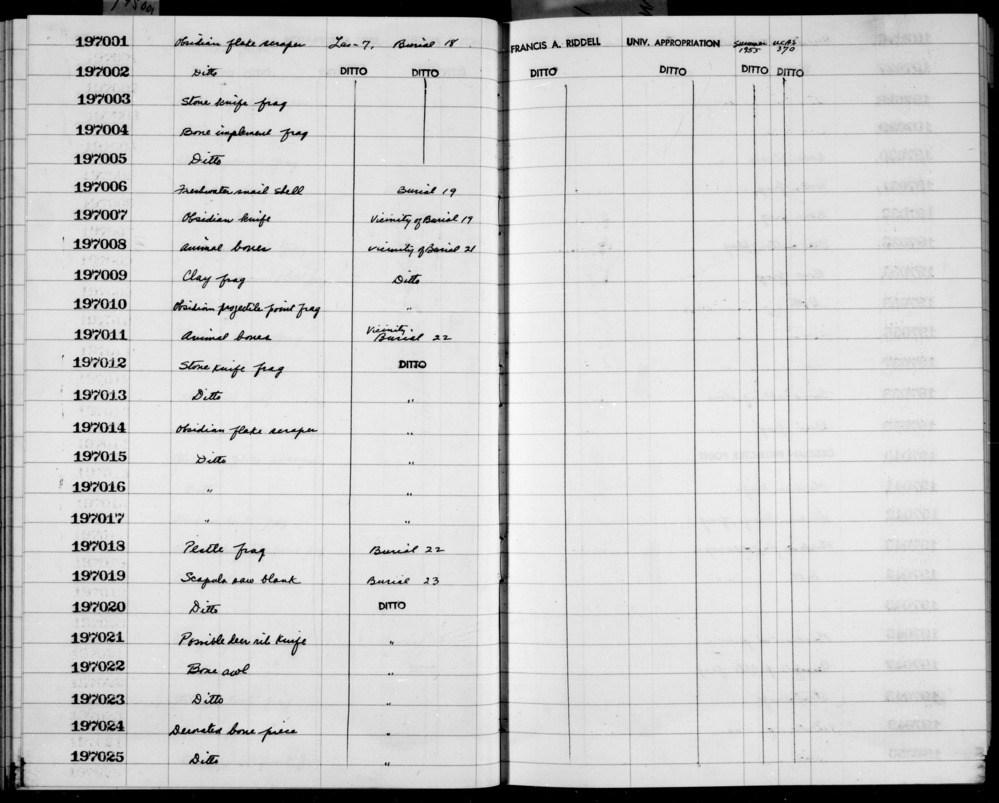 197001 Obsidian flake scraper Las-7, Burial 18 FRANCIS A. RIDDELL UNIV. APPROPRIATION Summer 1955 UCAS 370
197002 Ditto DITTO DITTO DITTO DITTO DITTO DITTO
197003 Stone knife frag
197004 Bone implement frag
197005 Ditto
197006 Freshwater snail shell Burial 19
197007 Obsidian knife Vicinity of Burial 19
197008 Animal bones Vicinity of Burial 21
197009 Clay frag Ditto
197010 Obsidian projectile point frag "
197011 Animal bones Vicinity Burial 22
197012 Stone knife frag DITTO
197013 Ditto "
197014 Obsidian flake scraper "
197015 Ditto "
197016 " "
197017 " "
197018 Pestle frag Burial 22
197019 Scapula saw blank Burial 23
197020 Ditto DITTO
197021 Possible deer rib knife "
197022 Bone awl "
197023 Ditto "
197024 Decorated bone piece "
197025 Ditto "